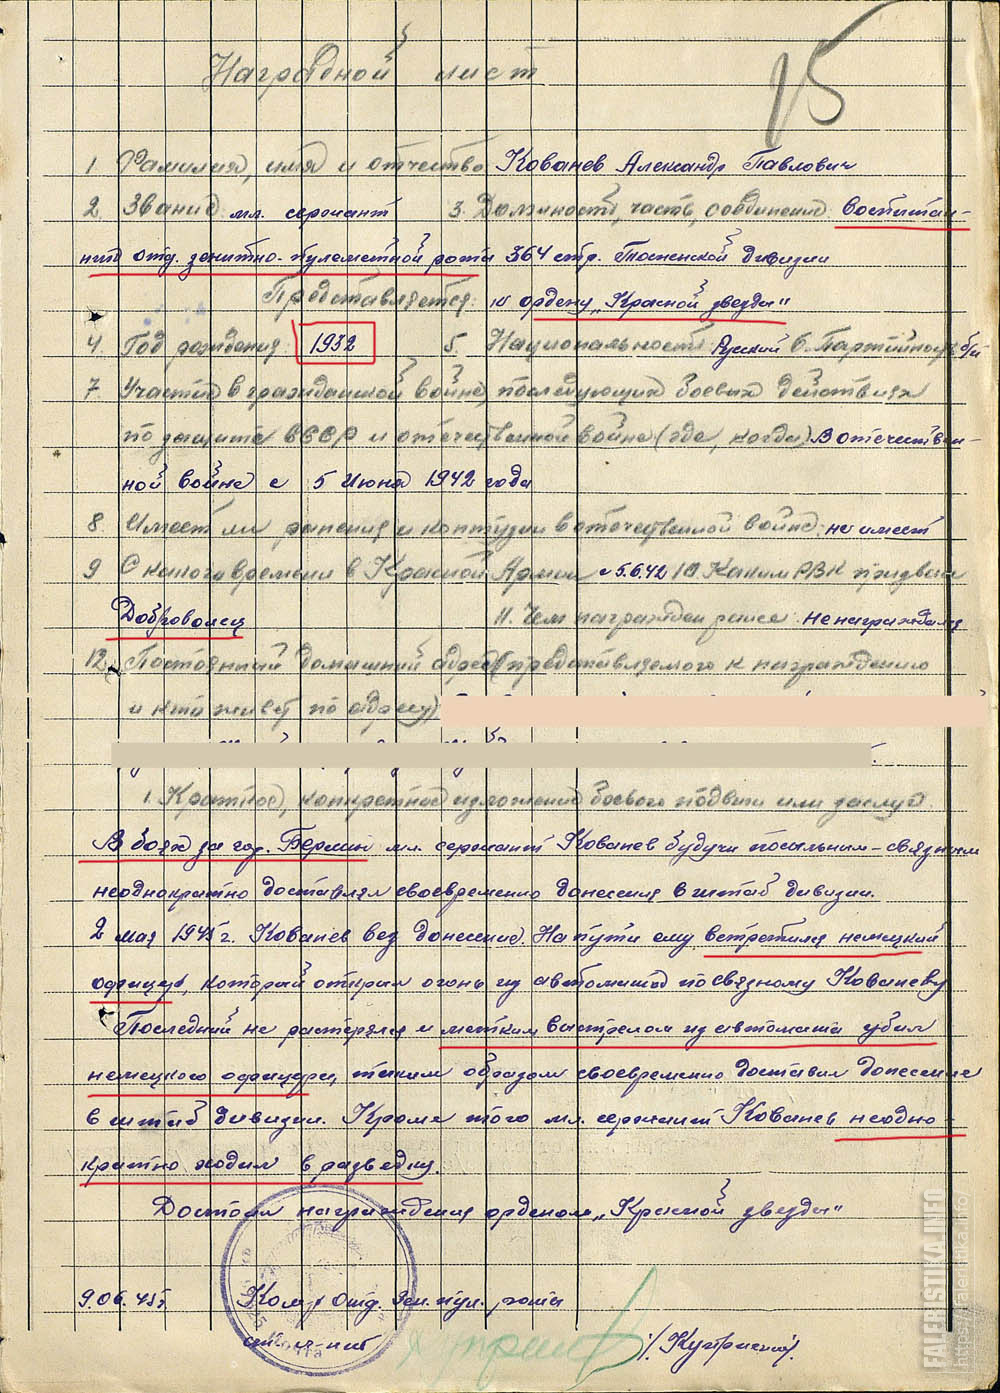 15
Наградной лист
1. Фамилия, имя и отчество Кованев Александр Павлович
2. Звание мл. сержант 3. Должность, часть, соединение воспитан-
ник отд. зенитно-пулеметной роты 364 стр. Тосненской дивизии
Представляется: к ордену „Красной звезды"
4. Год рождения 1932 5. Национальность Русский 6. Партийность б/п
7. Участие в гражданской войне, последующих боевых действиях
по защите СССР и отечественной войне (где, когда) В отечествен-
ной войне с 5 Июня 1942 года
8. Имеет ли ранения и контузии в отечественной войне: не имеет
9 С какого времени в Красной Армии с 5.6.42 10 Каким РВК призван
Доброволец 11. Чем награжден ранее: не награждался
12. Постоянный домашний адрес (представляемого к награждению
и кто живет по адресу)
1. Краткое, конкретное изложение боевого подвига или заслуг.
В боях за гор. Берлин мл. сержант Кованев будучи посыльным-связным
неоднократно доставлял своевременно донесения в штаб дивизии.
2 мая 1945 г. Кованев вез донесение. На пути ему встретился немецкий
офицер, который открыл огонь из автомата по связному Кованеву
Последний не растерялся и метким выстрелом из автомата убил
немецкого офицера, таким образом своевременно доставил донесение
в штаб дивизии. Кроме того мл. сержант Кованев неодно-
кратно ходил в разведку.
Достоин награждения орденом „Красной звезды"
9.06.45г. Ком-р отд. зен. пул. роты
/Кутринский/.
FALERISTIKA.INFO
https://faleristika.info